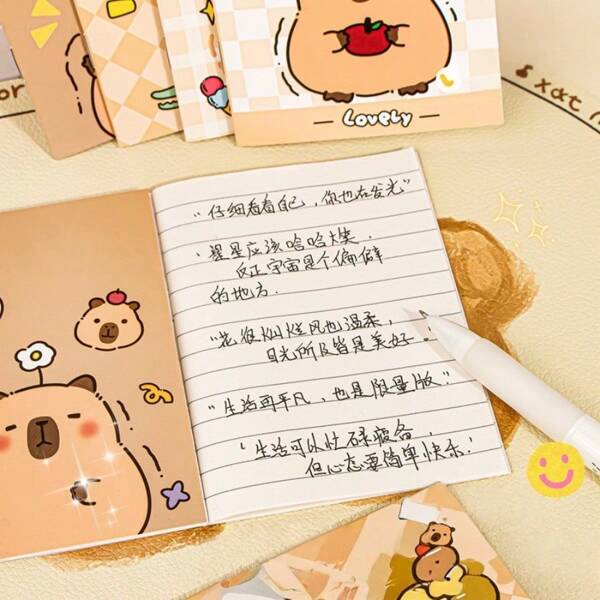 Lovely
"仔细看看自己，你也在发光"
、星星应该哈哈大笑.
反正宇宙是个偏僻
的地方.
"花很灿烂风也温柔,
目光所及皆是美好."
"生活再平凡，也是限量版."
"生活可以忙碌疲惫
但心态要简单快乐!